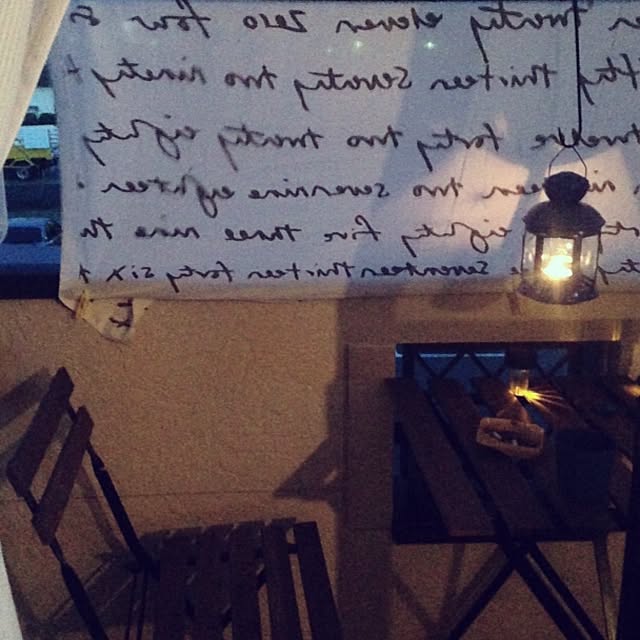 twenty eleven zero four
fifty thirteen seventy two ninety
twelve forty two twenty eighty
two seven nine eighteen
eighty five three nine
seventeen thirteen forty six